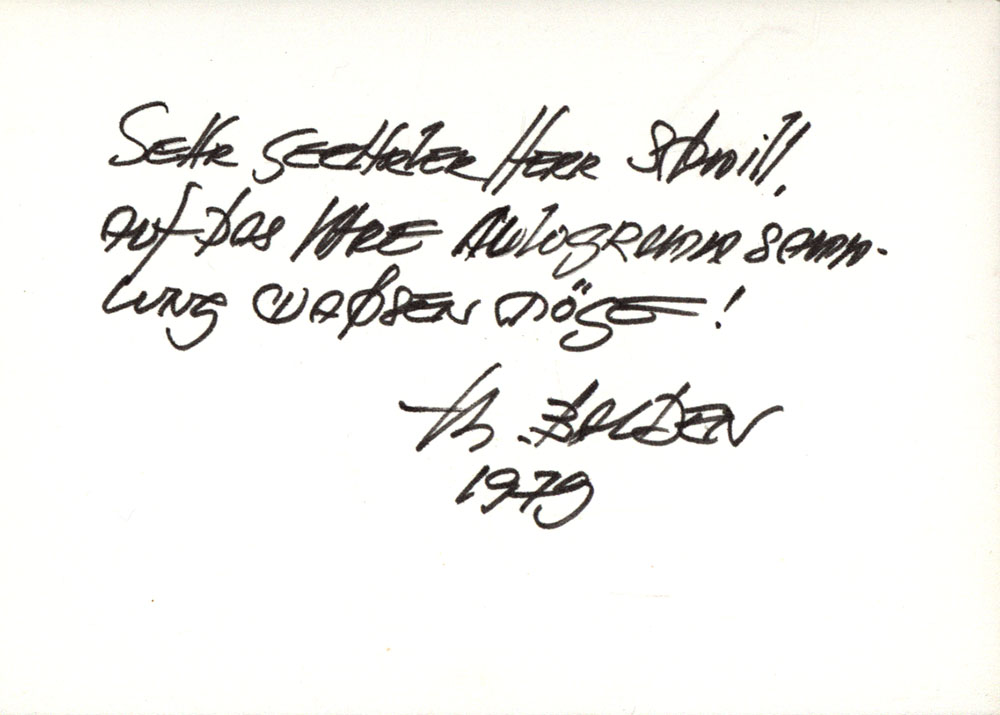 Sehr geehrter Herr Schmill,
auf das Ihre Autogrammsamm-
lung wachsen möge!
Th. Balden
1979